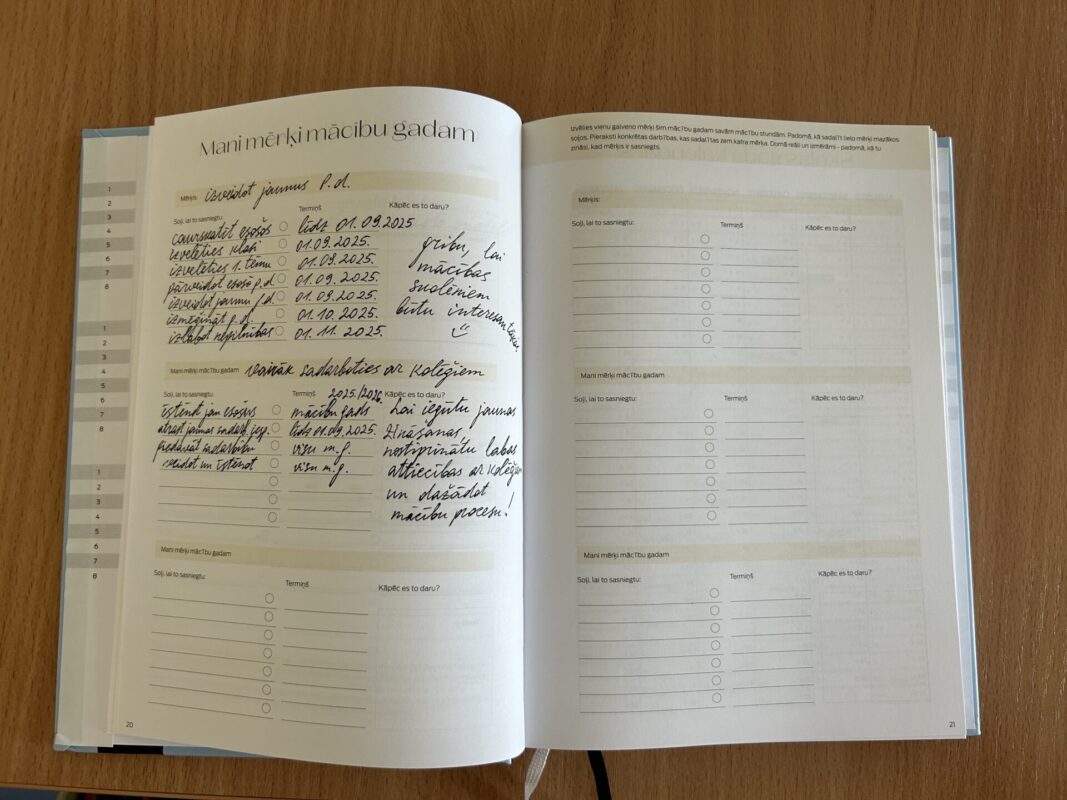 Mani mērķi mācību gadam
Mērķis: izveidot jaunus P.d.
Soļi, lai to sasniegtu: Termiņš Kāpēc es to daru?
caurskatīt esošos līdz 01.09.2025
izvēlēties klasi 01.09.2025.
izvēlēties 1. tēmu 01.09.2025.
pārveidot esošo p.d. 01.09.2025.
izveidot jaunu p.d. 01.09.2025.
izmēģināt p.d. 01.10.2025.
izlabot nepilnības 01.11.2025.
gribu, lai
mācības
skolēniem
būtu interesantākas.
Mani mērķi mācību gadam vairāk sadarboties ar kolēģiem
Soļi, lai to sasniegtu: Termiņš 2025./2026. Kāpēc es to daru?
īstenot jau esošus mācību gads
atrast jaunas sadarb. iesp. līdz 01.09.2025.
piedāvāt sadarbību visu m.g.
veidot un īstenot visu m.g.
Lai iegūtu jaunas
zināšanas
nostiprinātu labas
attiecības ar kolēģiem
un dažādot
mācību procesu!
Mani mērķi mācību gadam
Soļi, lai to sasniegtu: Termiņš Kāpēc es to daru?
20
Izvēlies vienu galveno mērķi šim mācību gadam savām mācību stundām. Padomā, kā sadalīt lielo mērķi mazākos
soļos. Pieraksti konkrētas darbības, kas sadalītas zem katra mērķa. Domā reāli un izmērāmi - padomā, kā tu
zināsi, kad mērķis ir sasniegts.
Mērķis:
Soļi, lai to sasniegtu: Termiņš Kāpēc es to daru?
Mani mērķi mācību gadam
Soļi, lai to sasniegtu: Termiņš Kāpēc es to daru?
Mani mērķi mācību gadam
Soļi, lai to sasniegtu: Termiņš Kāpēc es to daru?
21
1
2
3
4
5
6
7
8
1
2
3
4
5
6
7
8
1
2
3
4
5
6
7
8